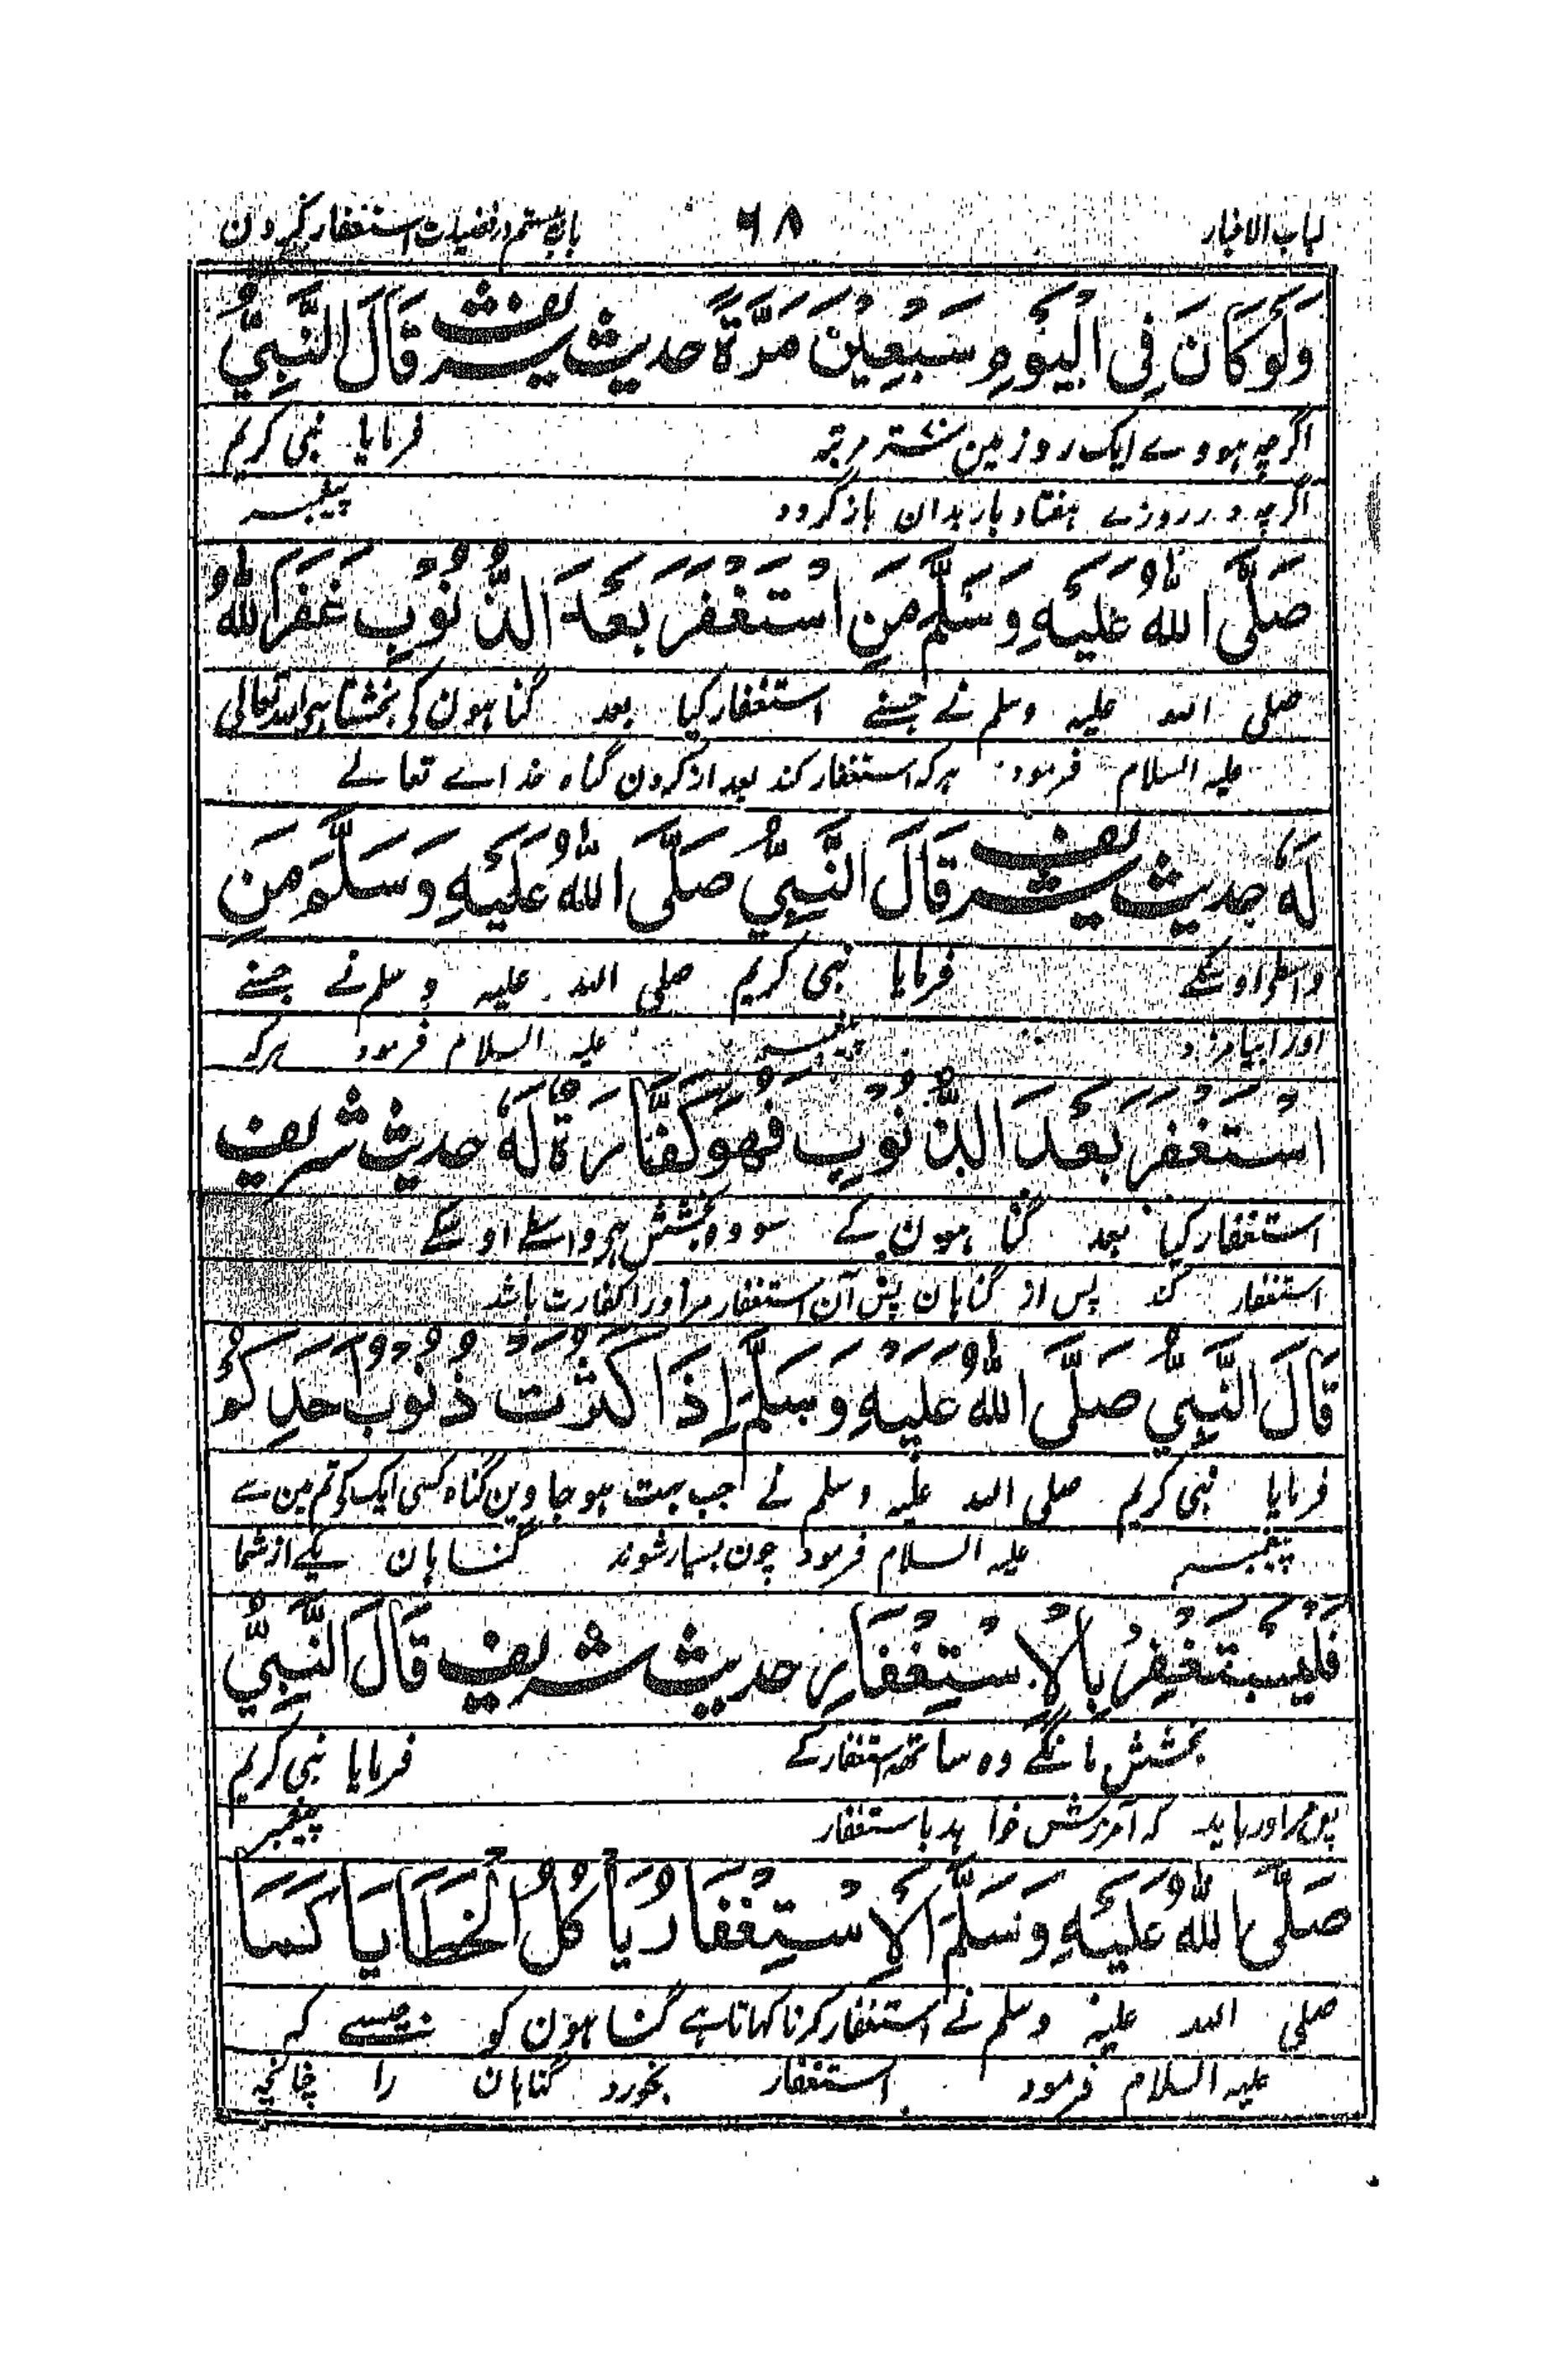 لباب الاخبار ۶۸ باب بستم در فضیلت استغفار کردن
وَلَوْ كَانَ فِى الْيَوْمِ سَبْعِيْنَ مَرَّةً حدیث شریف قَالَ النَّبِيُّ
اگرچہ ہووے ایک روز مین ستر مرتبہ فرمایا نبی کریم
اگرچہ در روزے ہفتاد بار بدان بازگردد پیغمبر
صَلَّى اللهُ عَلَيْهِ وَسَلَّمَ مَنِ اسْتَغْفَرَ بَعْدَ الذُّنُوْبِ غَفَرَ اللهُ
صلی اللہ علیہ وسلم نے جسنے استغفار کیا بعد گناہون کی بخشتا ہی اللہ تعالی
علیہ السلام فرمود ہرکہ استغفار کند بعد از کردن گناہ خداے تعالے
لَهٗ حدیث شریف قَالَ النَّبِيُّ صَلَّى اللهُ عَلَيْهِ وَسَلَّمَ مَنِ
واسطے اوسکے فرمایا نبی کریم صلی اللہ علیہ وسلم نے جسنے
اورا بیامرزد پیغمبر علیہ السلام فرمود ہرکہ
اسْتَغْفَرَ بَعْدَ الذُّنُوْبِ فَهُوَ كَفَّارَةٌ لَهٗ حدیث شریف
استغفار کیا بعد گناہون کے سو وہ بخشش ہی واسطے اوسکے
استغفار کند پس از گناہان پس آن استغفار مر اورا کفارت باشد
قَالَ النَّبِيُّ صَلَّى اللهُ عَلَيْهِ وَسَلَّمَ اِذَا كَثُرَتْ ذُنُوْبُ اَحَدِكُمْ
فرمایا نبی کریم صلی اللہ علیہ وسلم نے جب بہت ہو جاوین گناہ کسی ایک کو تم مین سے
پیغمبر علیہ السلام فرمود چون بسیار شوند گناہان یکے از شما
فَلْيَسْتَغْفِرْ بِالْاِسْتِغْفَارِ حدیث شریف قَالَ النَّبِيُّ
بخشش مانگے وہ ساتھ استغفار کے فرمایا نبی کریم
پس مر اورا باید کہ آمرزش خواہد باستغفار پیغمبر
صَلَّى اللهُ عَلَيْهِ وَسَلَّمَ اَلْاِسْتِغْفَارُ يَأْكُلُ الْخَطَايَا كَمَا
صلی اللہ علیہ وسلم نے استغفار کرنا کہاتا ہے گناہون کو جیسے کہ
علیہ السلام فرمود استغفار بخورد گناہان را چنانچہ